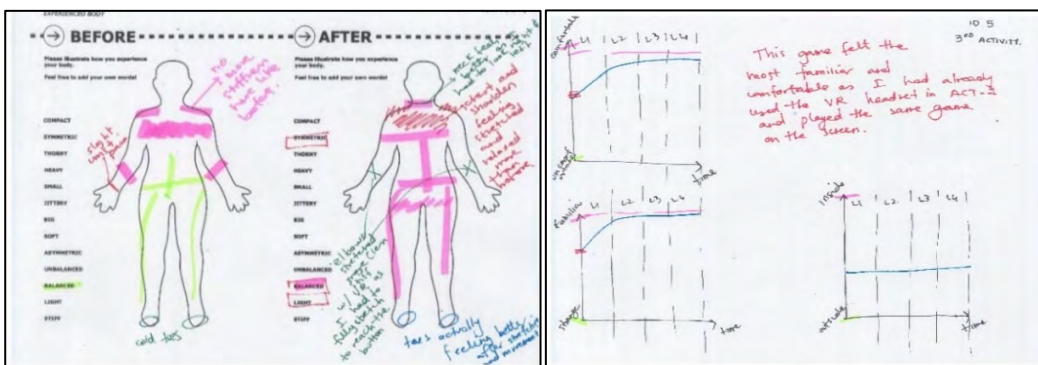 EXPERIENCED BODY
BEFORE
Please illustrate how you experience
your body.
Feel free to add your own words!
COMPACT
SYMMETRIC
THORNY
HEAVY
SMALL
JITTERY
BIG
SOFT
ASYMMETRIC
UNBALANCED
BALANCED
LIGHT
STIFF
no
more
stiffness
here like
before.
slight
wrist
pain
cold toes
AFTER
Please illustrate how you experience
your body.
Feel free to add your own words!
COMPACT
SYMMETRIC
THORNY
HEAVY
SMALL
JITTERY
BIG
SOFT
ASYMMETRIC
UNBALANCED
BALANCED
LIGHT
STIFF
neck feels
had to look left
and
shoulder
feeling
stretched
and
relaxed
more
than
before
elbows
stretched
more
w/ VR as
I had to
fully stretch
to reach the
button
toes actually
feeling better
after stretching
and movement
ID 5
3RD ACTIVITY.
This game felt the
most familiar and
comfortable as I had already
used the VR headset in ACT-2
and played the same game
on the screen.
comfortable
L1 L2 L3 L4
uncomfortable
time
familiar
L1 L2 L3 L4
strange
time
inside
L1 L2 L3 L4
outside
time